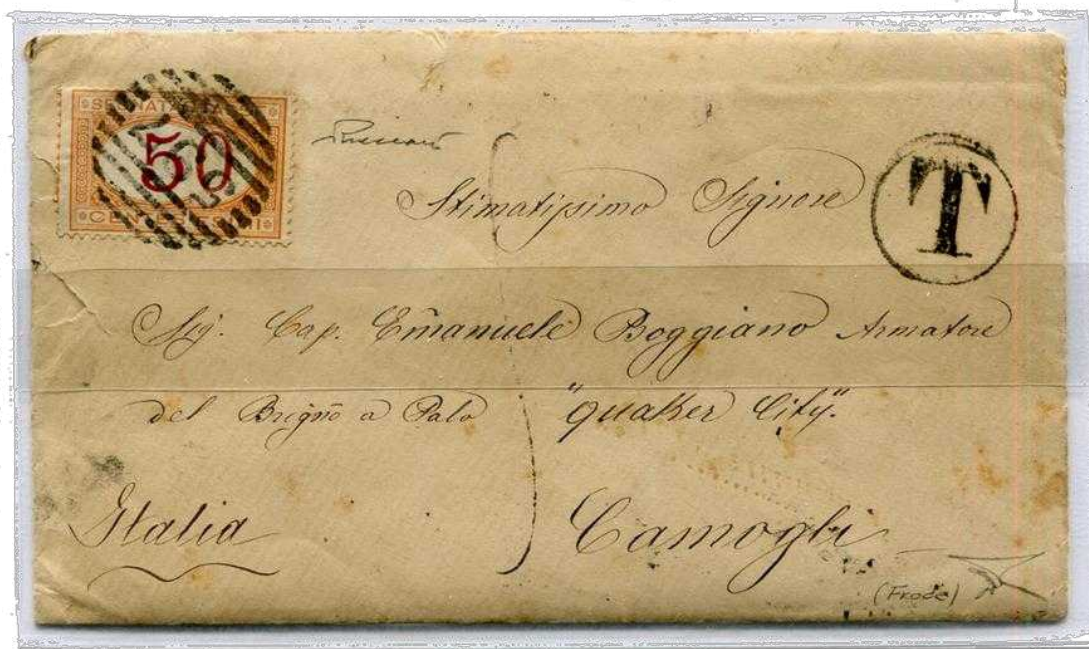 SEGNATASSE
50
CENTESIMI
T
Stimatissimo Signore
Sig. Cap. Emanuele Boggiano Armatore
del Brigno a Palo "Quaker City".
Italia Camogli
(Frode)